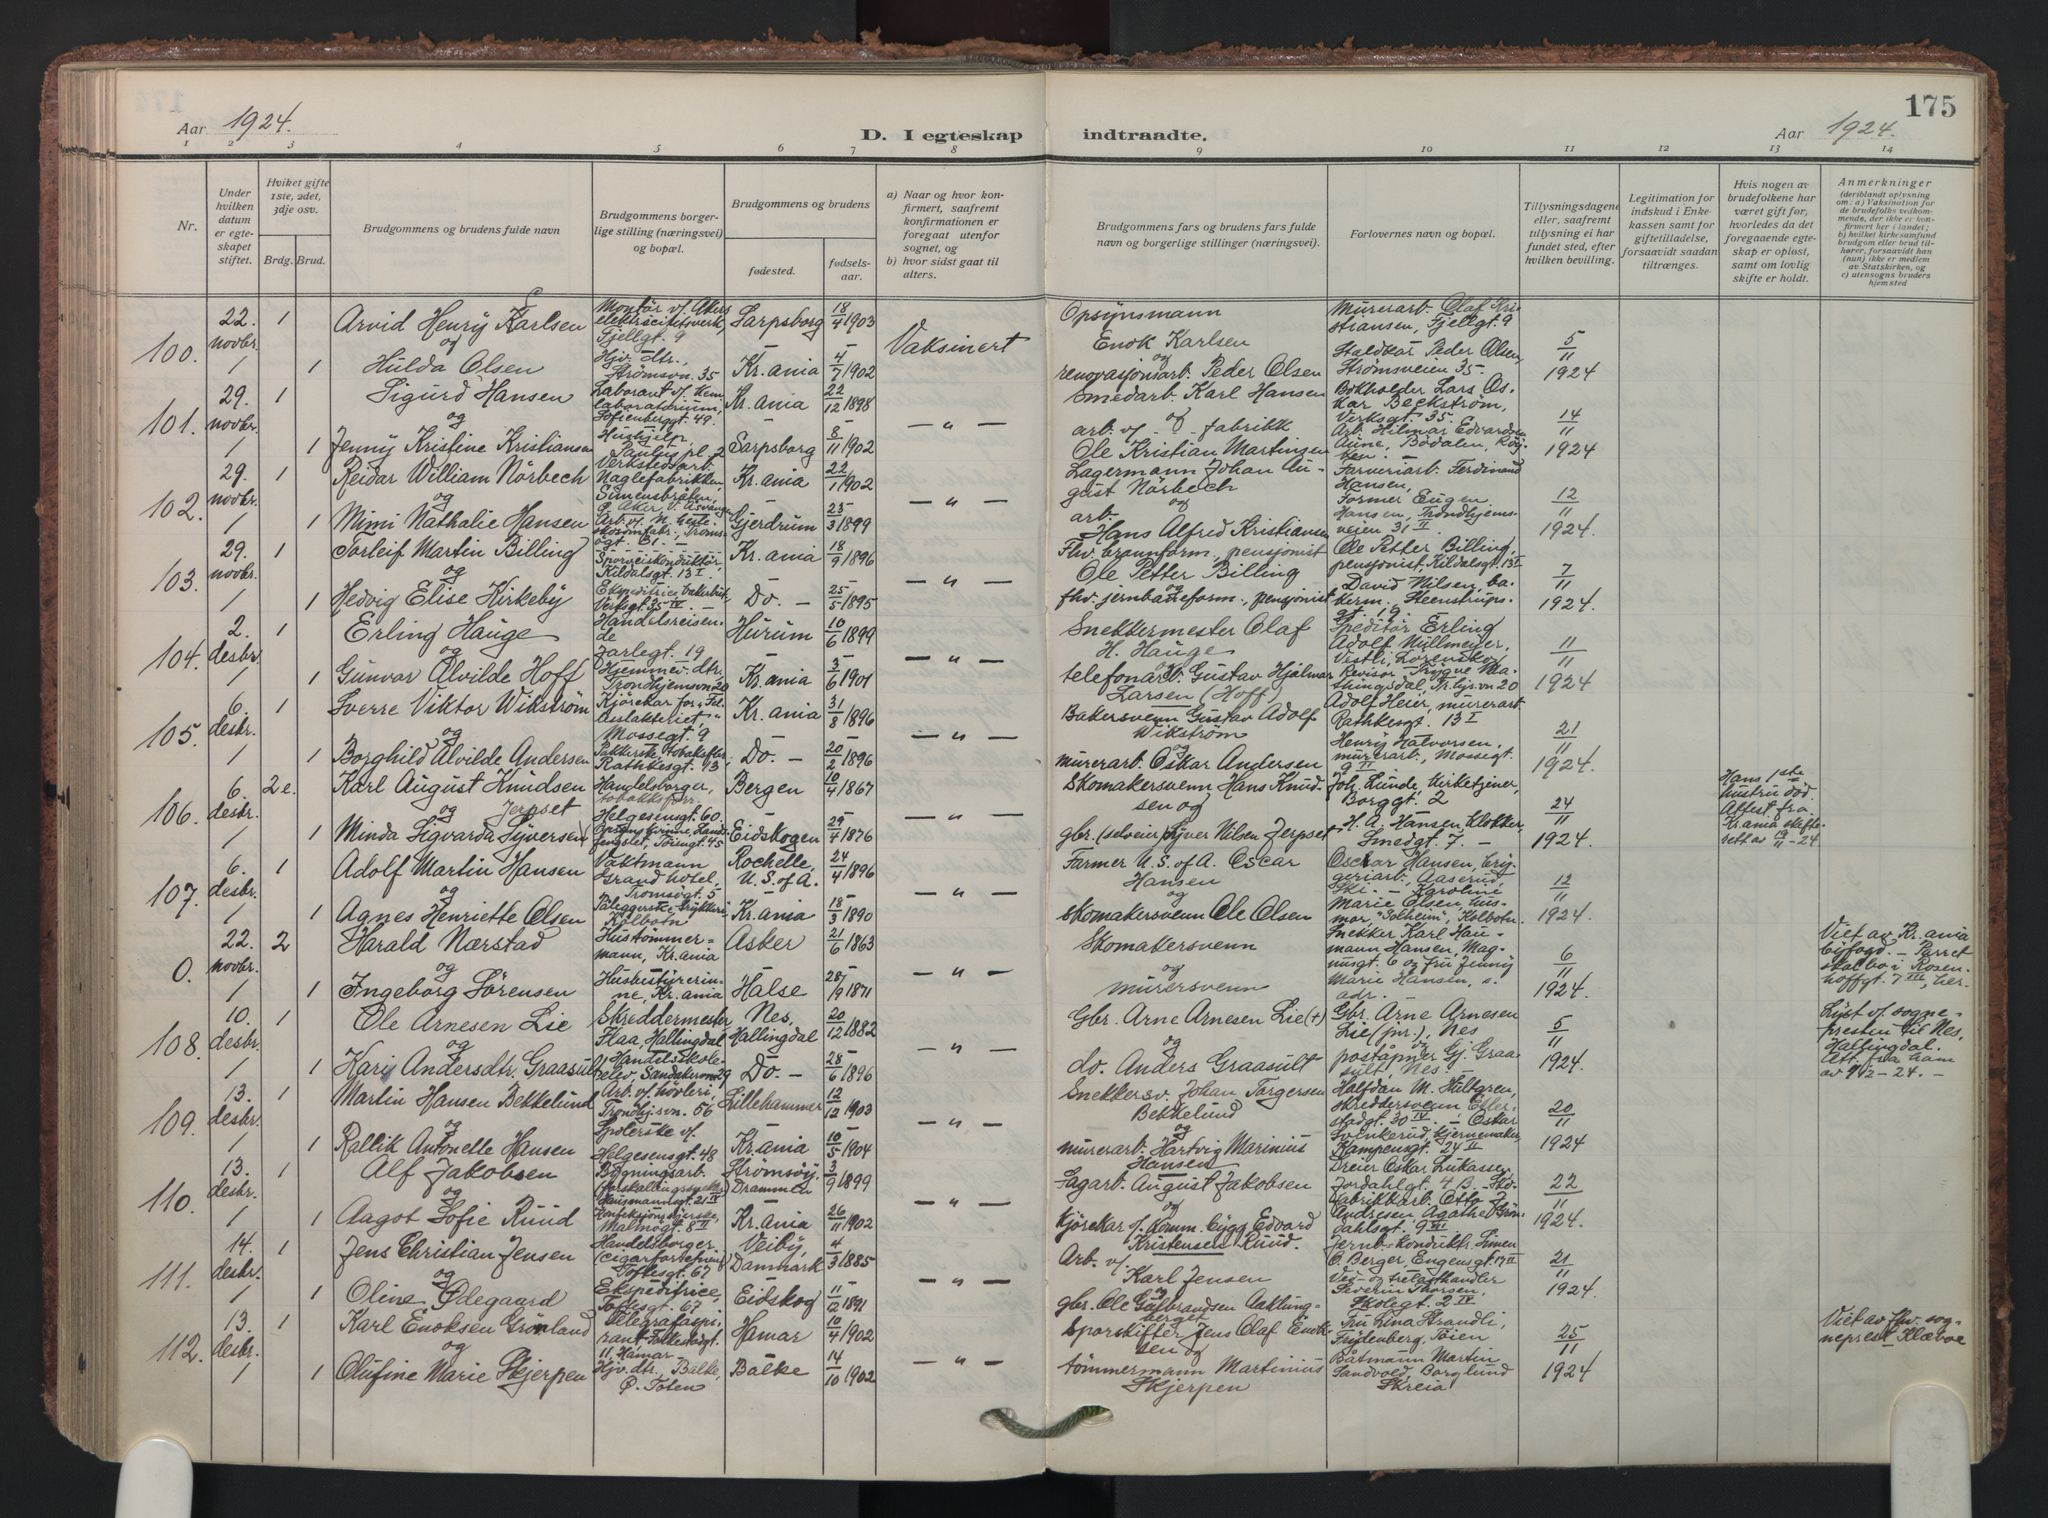 175
Aar 1924.
D. I egteskap indtraadte.
Aar 1924.
1 2 3 4 5 6 7 8 9 10 11 12 13 14
Nr.
Under hvilken datum er egteskapet stiftet.
Hviket gifte 1ste, 2det, 3dje osv.
Brdg. Brud.
Brudgommens og brudens fulde navn
Brudgommens borgerlige stilling (næringsvei) og bopæl.
Brudgommens og brudens
fødested.
fødselsaar.
a) Naar og hvor konfirmert, saafremt konfirmationen er foregaat utenfor sognet, og
b) hvor sidst gaat til alters.
Brudgommens fars og brudens fars fulde navn og borgerlige stillinger (næringsvei).
Forlovernes navn og bopæl.
Tillysningsdagene eller, saafremt tillysning ei har fundet sted, efter hvilken bevilling.
Legitimation for indskud i Enkekassen samt for giftetilladelse, forsaavidt saadan tiltrænges.
Hvis nogen av brudefolkene har været gift før, hvorledes da det foregaaende egteskap er opløst, samt om lovlig skifte er holdt.
Anmerkninger
(deriblandt oplysning om: a) Vaksination for de brudefolks vedkommende, der ikke er konfirmert her i landet; b) hvilket kirkesamfund brudgom eller brud tilhører, forsaavidt han (hun) ikke er medlem av Statskirken, og c) utensogns bruders hjemsted
100. 22. novbr. 1 Arvid Henry Karlsen Montør v/. Akers elektricitetsverk, Fjellgt. 9 Sarpsborg 18/4 1903 Vaksinert Opsynsmann Enok Karlsen Murerarb. Olaf Kristiansen, Fjellgt. 9 5/11 1924
og
1 1 Hulda Olsen Hjv. dtr., Strømsvn. 35 Kr.ania 4/7 1902 renovasjonsarb. Peder Olsen Staldkar Peder Olsen, Strømsveien 35.
101. 29. novbr. 1 Sigurd Hansen Laborant v/. Kem. laboratorium, Sofienberggt. 49. Kr.ania 22/12 1898 — " — Smedarb. Karl Hansen Bokholder Lars Oskar Beckström, Verksgt. 35. 14/11 1924
og
1 1 Jenny Kristine Kristiansen Hushjelp, Paulus pl. 2 Sarpsborg 8/11 1902 arb. v/. fabrikk Ole Kristian Martinsen Arb. Hilmar Edvardsen Aune, Bødalen, Røyken. -
102. 29. novbr. 1 Reidar William Nörbech Verkstedsarb. Naglefabrikken, Simensbråten, Ø. Aker Kr.ania 22/1 1902 — " — Lagermann Johan August Nörbech Farveriarb. Ferdinand Hansen, 12/11 1924.
og
1 1 Mimi Nathalie Hansen Gjerdrum 23/3 1899 arb. Hans Alfred Kristiansen Former Eugen Hansen, Trondhjemsveien 31 II
103. 29. novbr. 1 Torleif Martin Billing Sporveiskonduktör, Kildalsgt. 13 I. Kr.ania 18/9 1896 — " — Fhv. brannform., pensjonist Ole Petter Billing Ole Petter Billing, pensjonist, Kildalsgt. 13 I 7/11 1924.
og
1 1 Hedvig Elise Kirkeby Ekspeditrice bakerbut. Verksgt. 35 IV. - Do. - 25/5 1895 fhv. jernbaneform., pensjonist David Nilsen, bakerm. Steenstrupsgt. 19.
104. 2. desbr. 1 Erling Hauge Handelsreisende Jarlegt. 19 Hurum 10/6 1899 — " — Snekkermester Olaf H. Hauge Speditör Erling Adolf Nullmeyer, Vestli, Lorenskog 11/11 1924
og
1 1 Gunvor Alvilde Hoff Hjemmev. dtr. Trondhjemsvn 20 Kr.ania 3/6 1901 telefonarb. Gustav Hjalmar Larsen (Hoff) Revisor Trygve Mathingsdal, Tr.hjs.vn 20
105. 6. desbr. 1 Sverre Viktor Wikström Kjörekar for "Fellesslakteriet" Mossegt. 9 Kr.ania 31/8 1896 — " — Bakersvenn Gustav Adolf Wikström Adolf Heier, murerarb. Rathkesgt. 13 I 21/11 1924.
og
1 1 Borghild Alvilde Andersen Pakkerske tobaksfabr. Rathkesgt. 13 Do. - 20/2 1896 murerarb. Oskar Andersen Henry Halvorsen, murerarb., Mossegt. 9 II
106. 6. desbr. 2 e. Karl August Knudsen Handelsborger, tobakksforr. Helgesensgt. 60. Bergen 10/4 1867 — " — Skomakersvenn Hans Knudsen Joh. Lunde, Kirketjener, Borggt. 2 24/11 1924. Hans 1ste hustru död. Attest fra Kr.ania skifterett av 19/11-24
og Jerpset
1 1 Minda Sigvarda Syversen Eidskogen 29/4 1876 gbr. (selveier) Syver Nilsen Jerpset H. A. Hansen, Klokker, Smedgt. 7. -
107. 6. desbr. 1 Adolf Martin Hansen Vaktmann Grand hotel, Tromsögt. 5 Rochelle, U.S. of A. 24/4 1896 — " — Farmer U.S. of A. Oscar Hansen Osckar Hansen, bryggeriarb., Aaserud, Ski. - 12/11 1924.
og
1 1 Agnes Henriette Olsen Påleggerske trykkeri Kolbotn Kr.ania 18/3 1890 Skomakersvenn Ole Olsen Karoline Marie Olsen, husmor, "Solheim", Kolbotn.
0. 22. novbr. 2 Harald Nærstad Hustömmermann, Kr.ania Asker 21/6 1863 — " — Skomakersvenn Snekker Karl Haumann Hansen, Magnusgt. 6 og fru Jenny Marie Hansen, s. adr. - 6/11 1924. Viet av Kr.ania byfogd. - Parret skal bo i Rosenhoffgt. 7 III, her.
og
1 1 Ingeborg Sörensen Husbestyrerinne, Kr.ania Halse 28/9 1871 murersvenn
108. 10. desbr. 1 Ole Arnesen Lie Skreddermester Flaa, Hallingdal Nes, Hallingdal 20/12 1882 — " — Gbr. Arne Arnesen Lie (+) Gbr. Arne Arnesen Lie (jnr.), Nes 5/11 1924. Lyst v/. sognepresten til Nes, Hallingdal. Att. fra ham av 9/12-24. -
og
1 1 Kari Andersdtr. Graasult Handelsskoleelev, Sandakervn 29 Do. - 28/6 1896 do. Anders Graasult poståpner Gj. Graasult, Nes. -
109. 13. desbr. 1 Martin Hansen Bekkelund Arb. v/. høvleri, Trondhjsvn. 56 Lillehammer 12/12 1903 — " — Snekkersv. Johan Torgersen Bekkelund Halfdan M. Hultgren, skreddersvenn, Etterstadgt. 30 IV. - 20/11 1924
og
1 1 Rallik Antonette Hansen Spolerske v/. Helgesensgt. 48 Kr.ania 10/5 1904 murerarb. Hartvig Marinius Hansen Oskar Svenkerud, kjernemaker, Kampensgt. 24 II
110. 13. desbr. 1 Alf Jakobsen Bygningsarb. Strömsöy, Drammen 3/9 1899 — " — Sagarb. August Jakobsen Dreier Oskar Lukassen, Jordahlgt. 4 B. - 22/11 1924.
og
1 1 Aagot Sofie Ruud Konfeksjonssyerske, Malmøgt. 8 II Kr.ania 26/11 1902 kjörekar v/. Komm. bygg Edvard Kristensen Ruud. Otto J. Andresen Agathe Gröndahlsgt. 9 VI
111. 14. desbr. 1 Jens Christian Jensen Handelsborger (cigarforretning) Toftesgt. 67 Veiby, Danmark 4/3 1885 — " — Arb. v/. Karl Jensen Jernb.-konduktr. Simen O. Berger Engensgt. 17 II 21/11 1924.
og
1 1 Oline Ødegaard Ekspeditrice, Toftesgt. 67 Eidskog 11/12 1891 gbr. Ole Gulbrandsen Aaklungberget Ved- og trelasthandler Severin Thorsen, Skolegt. 2 IV
112. 13. desbr. 1 Karl Enoksen Grönland Telegrafaspirant 11, Hamar Hamar 10/4 1902 — " — Sporskifter Jens Olaf Enoksen Fru Lina Strandli, Frydenberg, Töien 25/11 1924 Viet av fhv. sogneprest Klævoe
og
1 1 Olufine Marie Skjerpen Hjv. dtr. Balke, Ø. Toten Balke 14/10 1902 tömmermann Martinius Skjerpen Båtmann Martin Sandvold, Borglund Skreia